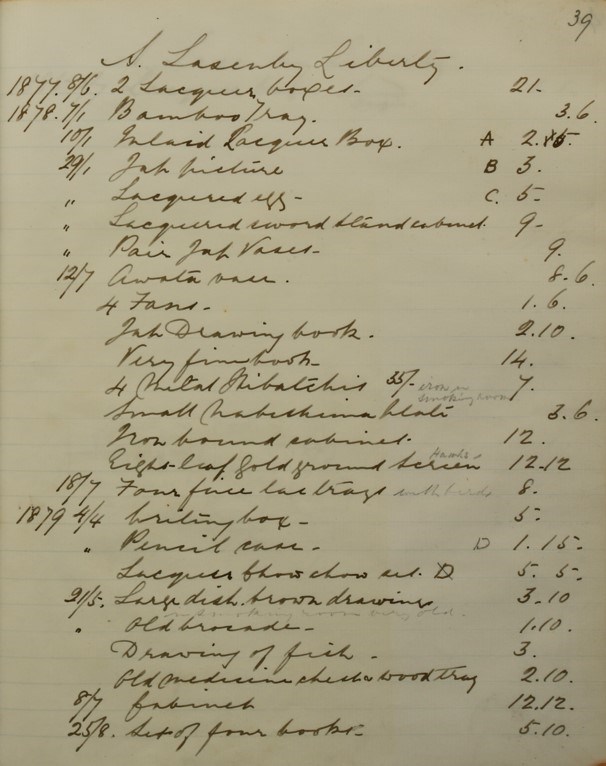 39
A. Lasenby Liberty.
1877. 8/6. 2 Lacquer boxes - 21 -
1878. 7/1 Bamboo Tray. 3. 6.
10/1 Inlaid Lacquer Box. A 2. 15.
29/1 Jap picture B 3.
" Lacquered egg - C. 5 -
" Lacquered sword stand cabinet. 9 -
" Pair Jap Vases - 9.
12/7 Awata vase. 8. 6.
4 Fans - 1. 6.
Jap Drawing book. 2. 10.
Very fine book - 14.
4 Metal Hibatchis 35/- iron in smoking room 7.
Small Nabeshima plate 3. 6.
Iron bound cabinet. 12.
Eight-leaf gold ground screen Hawks 12. 12
18/7 Four fine lac trays with birds 8.
1879 4/4 Writing box - 5 -
" Pencil case - D 1. 15 -
Lacquer Chow chow set. D 5. 5 -
21/5. Large dish, brown drawings 3. 10
in smoking room very old.
" Old brocade - 1. 10.
Drawing of fish - 3.
Old medicine chest & wood tray 2. 10.
8/7 Cabinet 12. 12.
25/8. Set of four books - 5. 10.